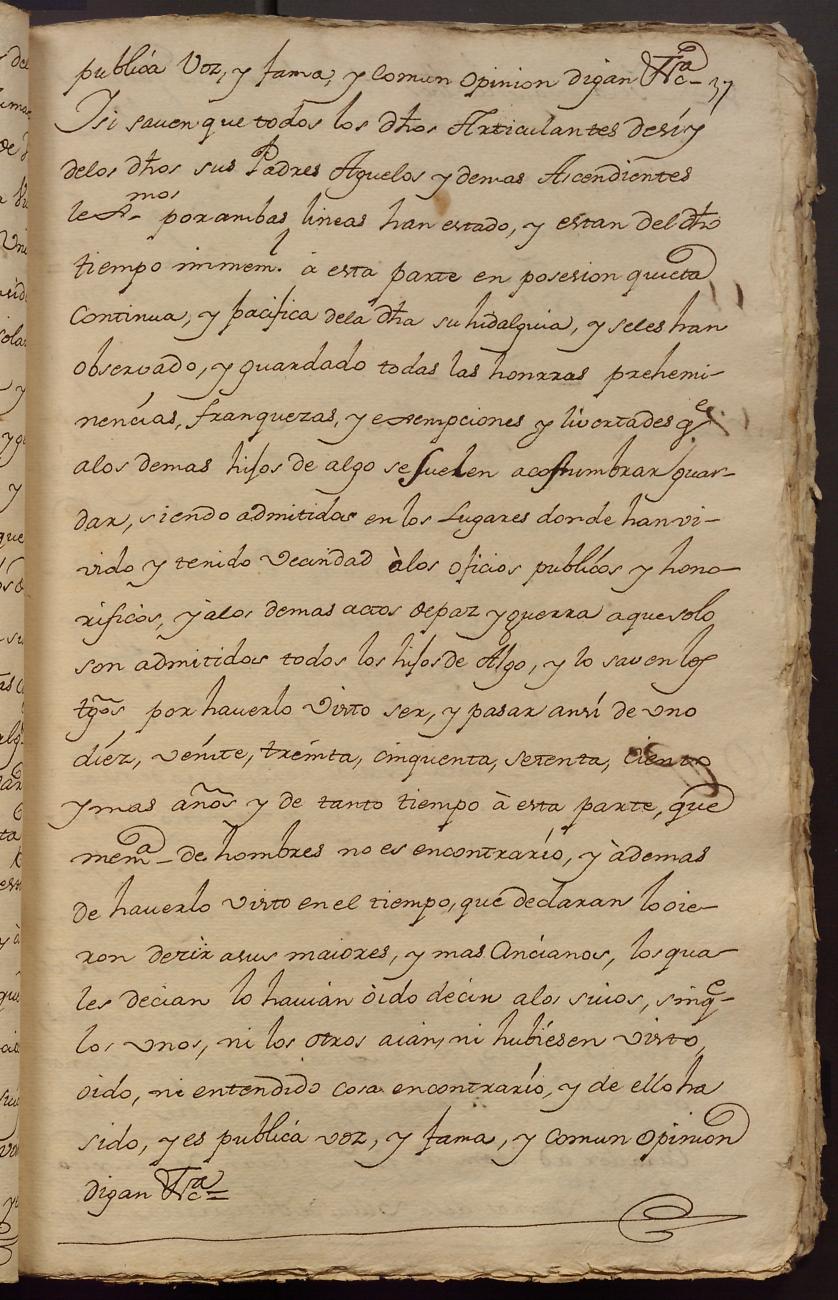 publica Voz, y fama, y Comun Opinion digan &ca- 37
Isi saven que todos los dhos Articulantes de sí y
delos dhos sus Padres Aguelos y demas Ascendientes
lexmos por ambas lineas han estado, y estan del dho
tiempo inmeml. á esta parte en posesion quieta
Continua, y pacifica dela dha su hidalguia, y seles han
observado, y guardado todas las honrras prehemi-
nencias, franquezas, y exempciones y livertades qe
alos demas hijos de algo se suelen acostumbrar guar-
dar, siendo admitidos en los Lugares donde han vi-
vido y tenido vecindad àlos oficios publicos y hono-
rificos, y àlos demas actos de paz y guerra a que solo
son admitidos todos los hijos de Algo, y lo saven los
tgõs por haverlo Visto ser, y pasar ansí de uno
diéz, veinte, treinta, cinquenta, setenta, ciento
y mas años y de tanto tiempo à esta parte, que
mema- de hombres no es encontrario, y àdemas
de haverlo visto en el tiempo, que declaran lo oie-
ron dezir asus maiores, y mas Ancianos, los qua-
les decian lo havian òido decir alos suios, sin qe-
los unos, ni los otros aian, ni hubiesen visto,
oido, ni entendido cosa encontrario, y de ello ha
sido, y es publica voz, y fama, y Comun Opinion
digan &ca=